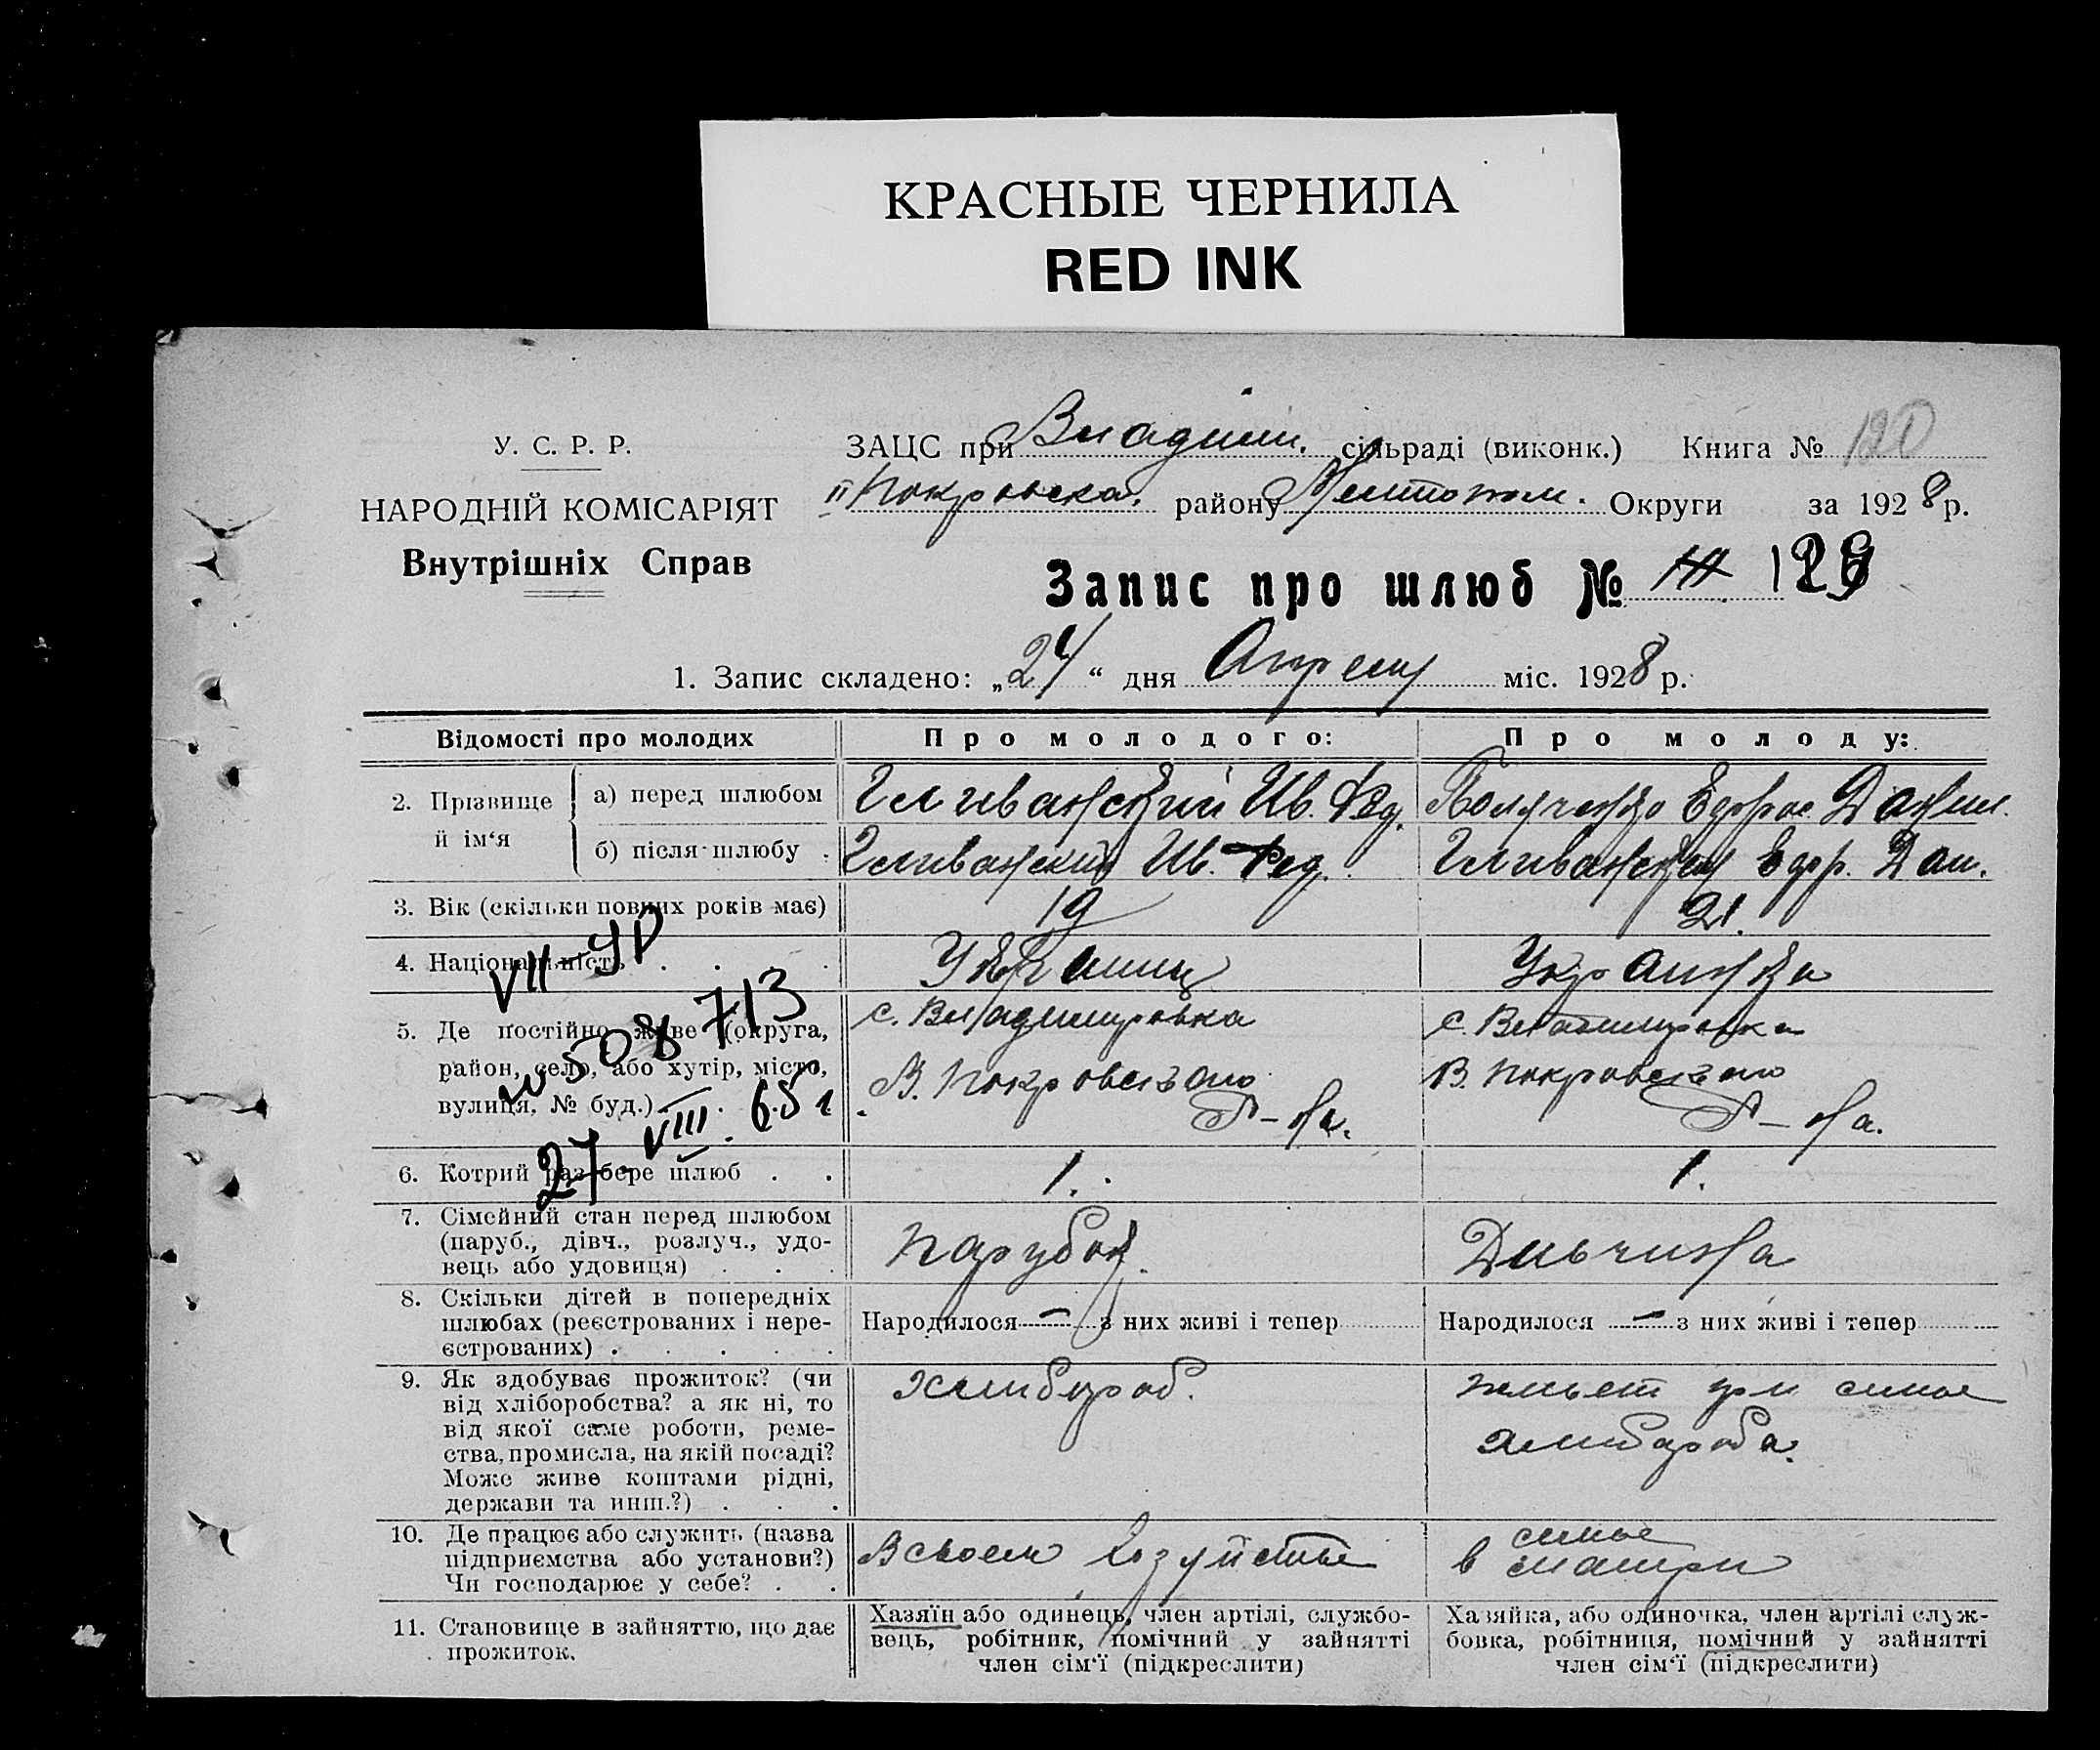 КРАСНЫЕ ЧЕРНИЛА
RED INK
У. С. Р. Р.
НАРОДНІЙ КОМІСАРІЯТ
Внутрішніх Справ
ЗАЦС при Владим. сільраді (виконк.) Книга № 120
Покровска. району Мелитопол. Округи за 1928 р.
Запис про шлюб №
1. Запис складено: „24“ дня Апреля міс. 1928 р.
Відомості про молодих
Про молодого:
Про молоду:
2. Прізвище й ім‘я
а) перед шлюбом
Ив. Фед.
Ефрос. Данил.
б) після шлюбу .
Ив. Фед.
Ефр. Дан.
3. Вік (скільки повних років має)
19
21.
4. Національність . . . .
Украинец
Украинка
5. Де постійно живе (округа,
район, село, або хутір, місто,
вулиця, № буд.) . . .
с. Владимировка
В. Покровского
Р-на.
с. Владимировка
В. Покровского
Р-на.
VII-УР
508713
27-VIII. 65 г
6. Котрий раз бере шлюб . .
1.
1.
7. Сімейний стан перед шлюбом
(паруб., дівч., розлуч., удо-
вець або удовиця) . . .
Парубок.
Дивчина
8. Скільки дітей в попередніх
шлюбах (реєстрованих і нере-
єстрованих) . . . . .
Народилося — з них живі і тепер
Народилося — з них живі і тепер
9. Як здобуває прожиток? (чи
від хліборобства? а як ні, то
від якої саме роботи, реме-
ства, промисла, на якій посаді?
Може живе коштами рідні,
держави та инш.?) . . .
Хлибороб.
живет при семье
хлибороба.
10. Де працює або служить (назва
підприємства або установи?)
Чи господарює у себе? . .
В своем хозяйстве
в семье
матери
11. Становище в зайняттю, що дає
прожиток.
Хазяїн або одинець, член артілі, службо-
вець, робітник, помічний у зайнятті
член сім‘ї (підкреслити)
Хазяйка, або одиночка, член артілі служ-
бовка, робітниця, помічний у зайнятті
член сім‘ї (підкреслити)